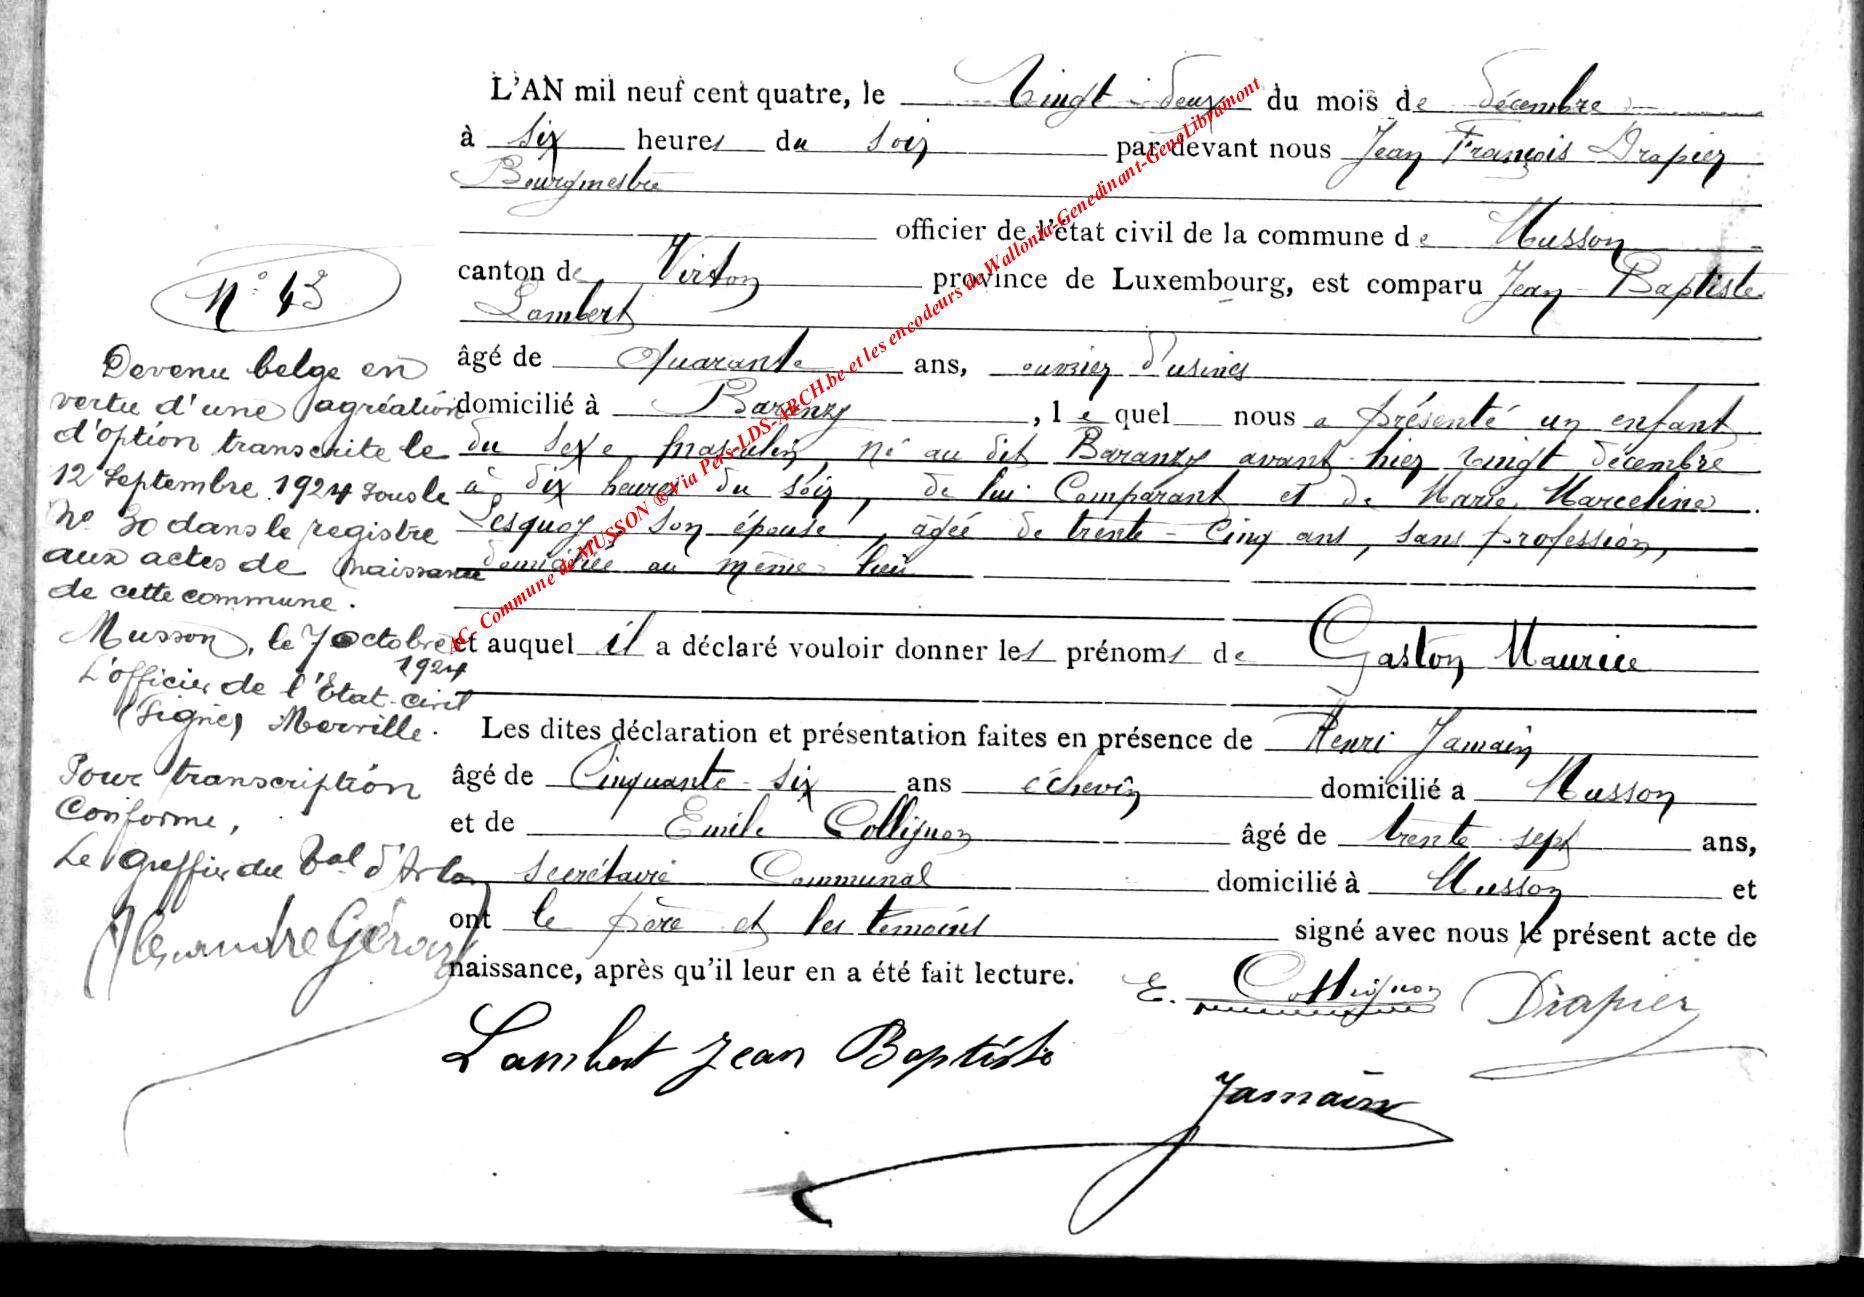 L'AN mil neuf cent quatre, le Vingt-deux du mois de décembre
à six heures du soir par devant nous Jean François Drapier
Bourgmestre
officier de l'état civil de la commune de Musson
canton de Virton province de Luxembourg, est comparu Jean-Baptiste
Lambert
âgé de quarante ans, ouvrier d'usines
domicilié à Baranzy, lequel nous a présenté un enfant
du sexe masculin, né au dit Baranzy avant-hier vingt décembre
à dix heures du soir, de lui Comparant et de Marie Marceline
Lesquoy son épouse, âgée de trente-cinq ans, sans profession,
domiciliée au même lieu
et auquel il a déclaré vouloir donner les prénoms de Gaston Maurice
Les dites déclaration et présentation faites en présence de Henri Jamain
âgé de Cinquante-six ans échevin domicilié a Musson
et de Emile Collignon âgé de trente sept ans,
secrétaire Communal domicilié à Musson et
ont le père et les témoins signé avec nous le présent acte de
naissance, après qu'il leur en a été fait lecture.
E. Collignon Drapier
Lambert Jean Baptiste
Jamain
N° 43
Devenu belge en
vertu d'une agréation
d'option transcrite le
12 Septembre 1924 sous le
N° 30 dans le registre
aux actes de naissance
de cette commune.
Musson, le 7 octobre
1924
L'officier de l'Etat-civil
(Signé) Merville.
Pour transcription
Conforme,
Le Greffier du Bal d'Arlon
Alexandre Gérard
AC- Commune de MUSSON ® Via Pers-LDS-ARCH.be et les encodeurs de Wallonia-Genedinant-GenoLibramont